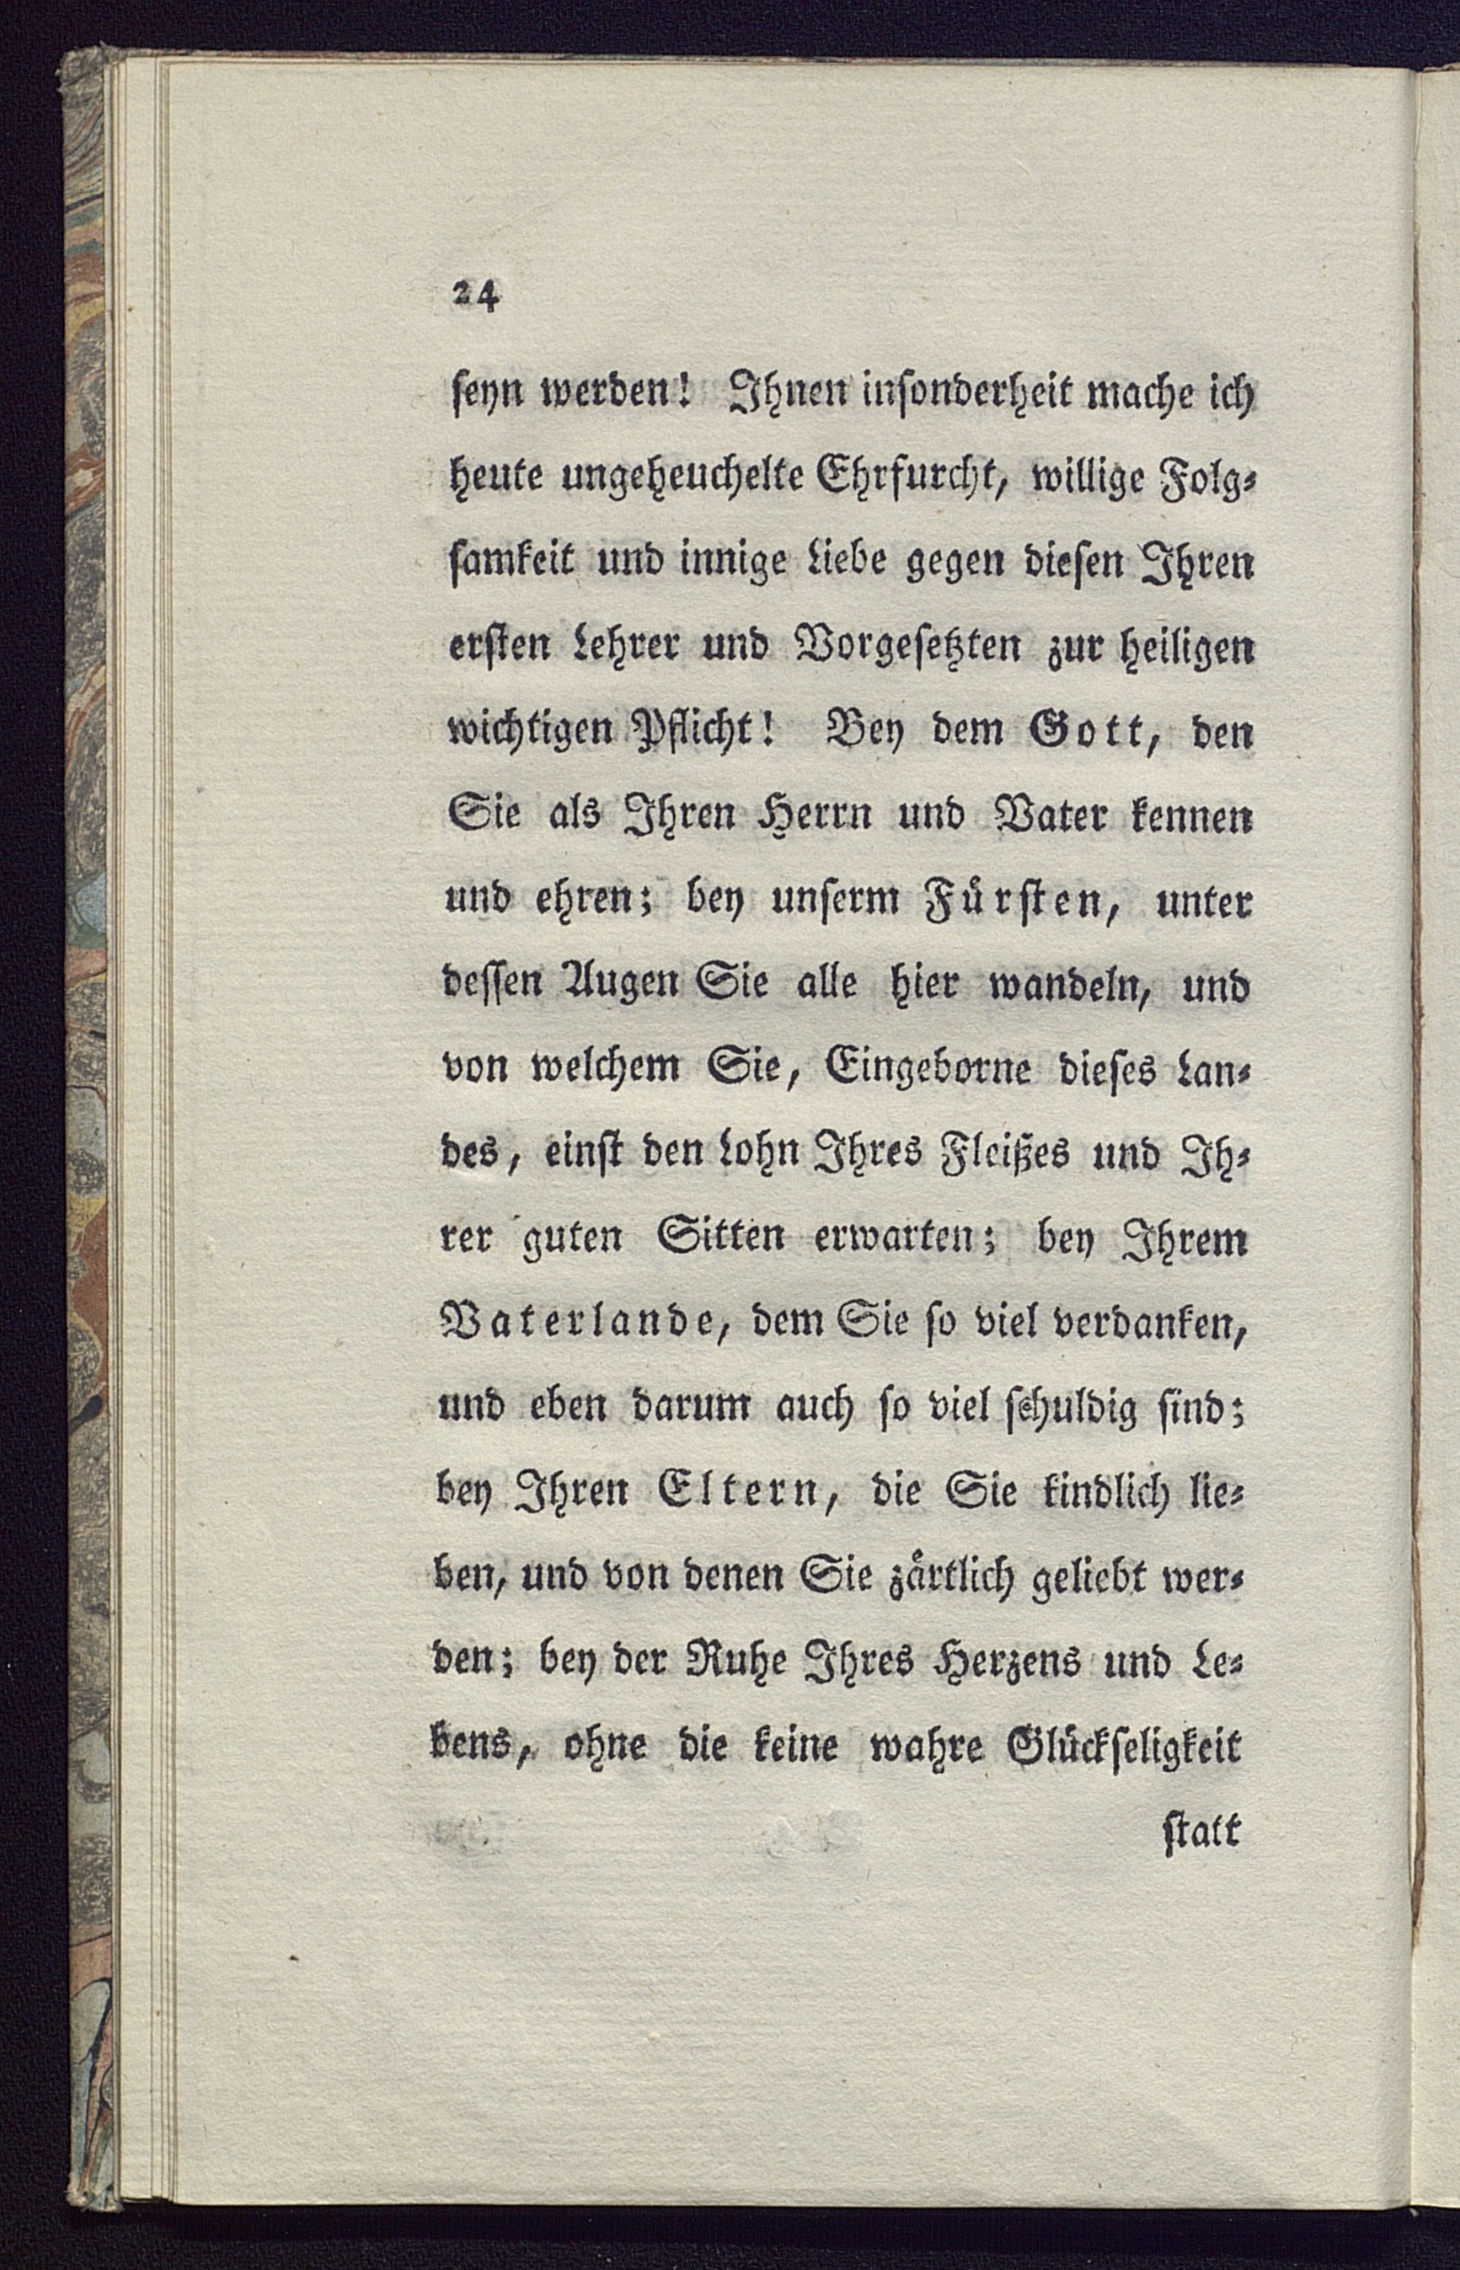 24
seyn werden! Ihnen insonderheit mache ich
heute ungeheuchelte Ehrfurcht, willige Folg-
samkeit und innige Liebe gegen diesen Ihren
ersten Lehrer und Vorgesetzten zur heiligen
wichtigen Pflicht! Bey dem Gott, den
Sie als Ihren Herrn und Vater kennen
und ehren; bey unserm Fürsten, unter
dessen Augen Sie alle hier wandeln, und
von welchem Sie, Eingeborne dieses Lan-
des, einst den Lohn Ihres Fleißes und Ih-
rer guten Sitten erwarten; bey Ihrem
Vaterlande, dem Sie so viel verdanken,
und eben darum auch so viel schuldig sind;
bey Ihren Eltern, die Sie kindlich lie-
ben, und von denen Sie zärtlich geliebt wer-
den; bey der Ruhe Ihres Herzens und Le-
bens, ohne die keine wahre Glückseligkeit
statt